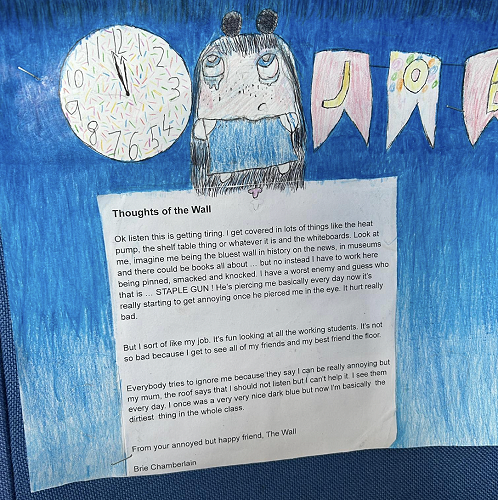 11 12 1
10 2
9 3
8 4
7 6 5
J O
Thoughts of the Wall
Ok listen this is getting tiring. I get covered in lots of things like the heat
pump, the shelf table thing or whatever it is and the whiteboards. Look at
me, imagine me being the bluest wall in history on the news, in museums
and there could be books all about ... but no instead I have to work here
being pinned, smacked and knocked. I have a worst enemy and guess who
that is ... STAPLE GUN ! He's piercing me basically every day now it's
really starting to get annoying once he pierced me in the eye. It hurt really
bad.
But I sort of like my job. It's fun looking at all the working students. It's not
so bad because I get to see all of my friends and my best friend the floor.
Everybody tries to ignore me because they say I can be really annoying but
my mum, the roof says that I should not listen but I can't help it. I see them
every day. I once was a very very nice dark blue but now I'm basically the
dirtiest thing in the whole class.
From your annoyed but happy friend, The Wall
Brie Chamberlain